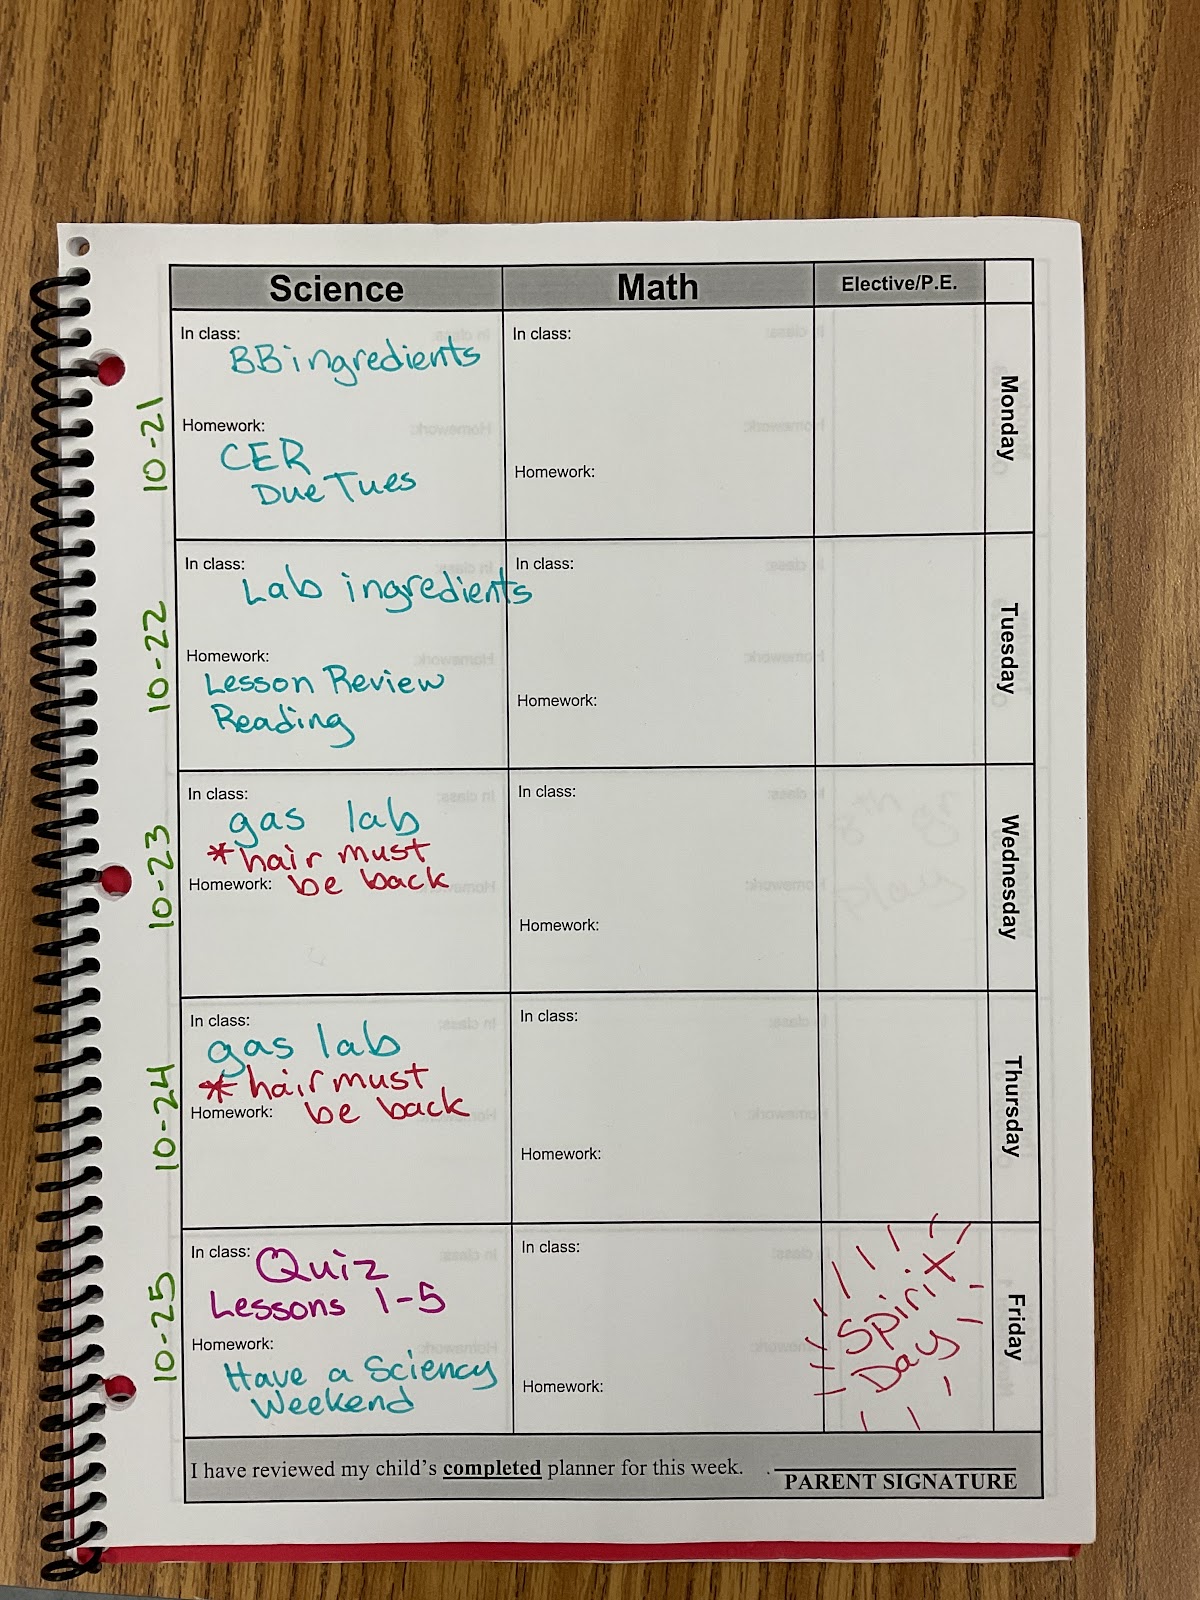 Science Math Elective/P.E.
10-21
In class:
BB ingredients
Homework:
CER
Due Tues
In class:
Homework:
Monday
10-22
In class:
Lab ingredients
Homework:
Lesson Review
Reading
In class:
Homework:
Tuesday
10-23
In class:
gas lab
*hair must
Homework: be back
In class:
Homework:
Wednesday
10-24
In class:
gas lab
*hair must
Homework: be back
In class:
Homework:
Thursday
10-25
In class: Quiz
Lessons 1-5
Homework:
Have a Sciency
Weekend
In class:
Homework:
Spirit
Day
Friday
I have reviewed my child's completed planner for this week.
PARENT SIGNATURE